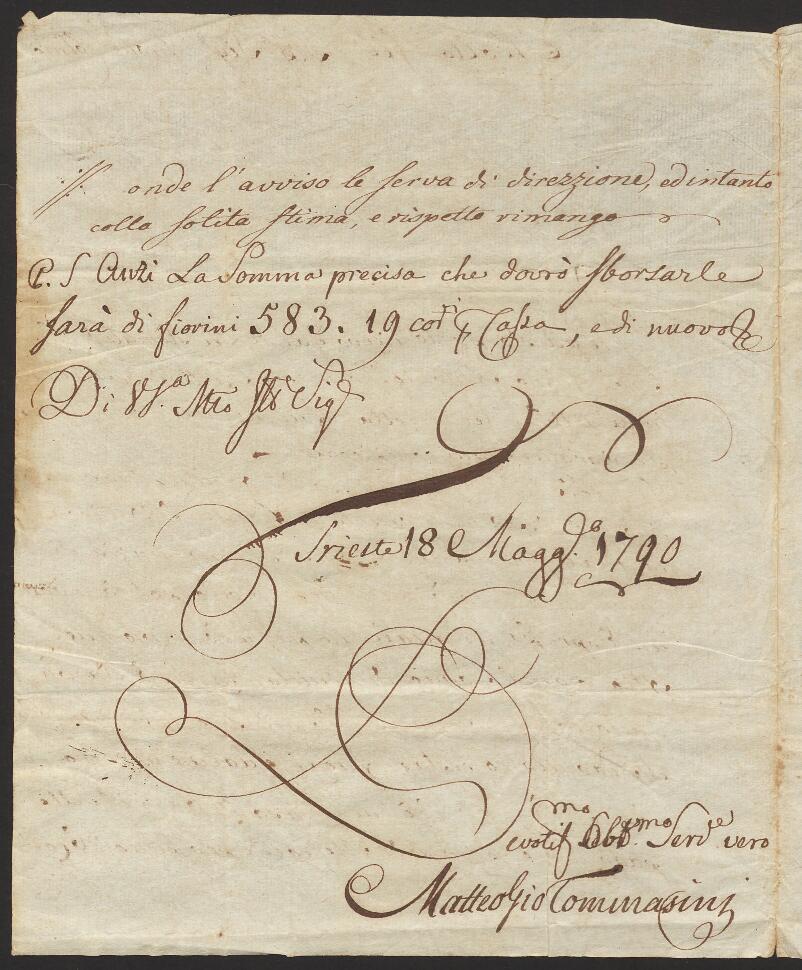 //. onde l'avviso le serva di direzzione, ed intanto
colla solita stima, e rispetto rimango
P. S Anzi La Somma precisa che dovrò sborsarle
sarà di fiorini 583. 19 corti Cassa, e di nuovo
Di VSa. Mto Ille Sigr
Trieste 18 Maggo. 1790
Devotismo Obbmo Serve vero
Matteo Gio Tommasini